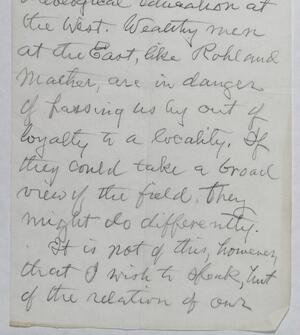 Theological Education at
the West. Wealthy men
at the East, like Rohl and
Mather, are in danger
of passing us by out of
loyalty to a locality. If
they could take a broad
view of the field, they
might do differently.
It is not of this, however,
that I wish to speak, but
of the relation of our